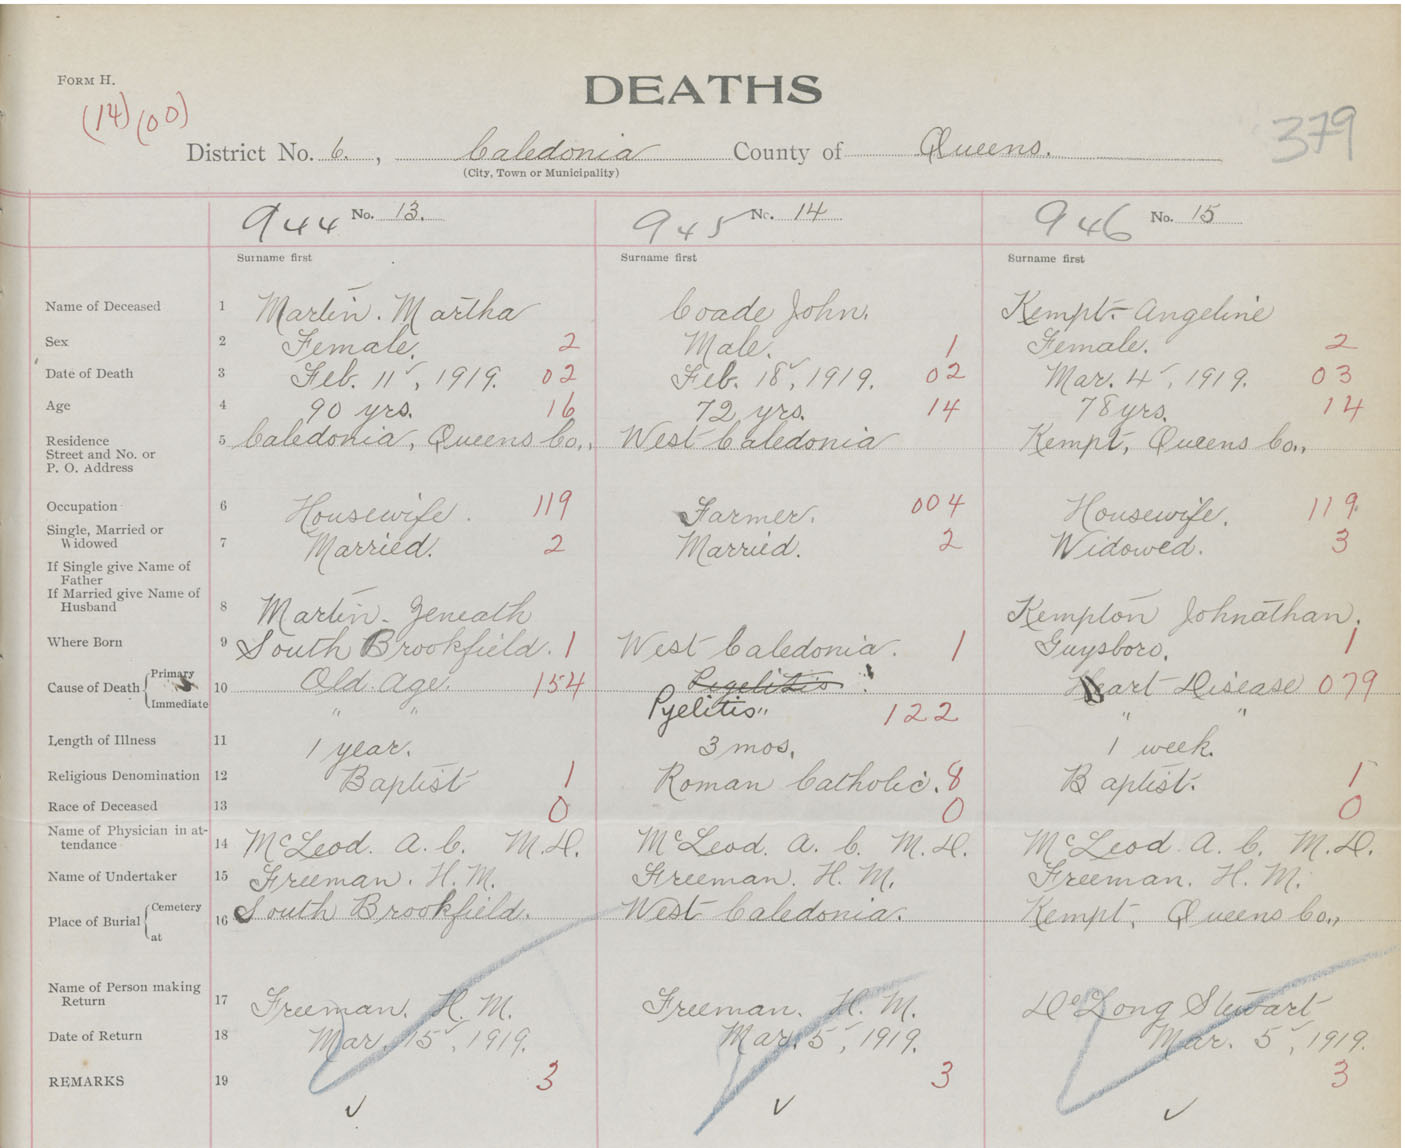 FORM H.
DEATHS
(14) (00)
379
District No. 6. , Caledonia County of Queens.
(City, Town or Municipality)
944 No. 13. 945 No. 14 946 No. 15
Surname first Surname first Surname first
Name of Deceased 1 Martin. Martha Coade John. Kempt. Angeline
Sex 2 Female. 2 Male. 1 Female. 2
Date of Death 3 Feb. 11, 1919. 02 Feb. 18, 1919. 02 Mar. 4, 1919. 03
Age 4 90 yrs. 16 72 yrs. 14 78 yrs. 14
Residence 5 Caledonia, Queens Co., West Caledonia Kempt, Queens Co.,
Street and No. or
P. O. Address
Occupation 6 Housewife. 119 Farmer. 004 Housewife. 119
Single, Married or
Widowed 7 Married. 2 Married. 2 Widowed. 3
If Single give Name of
Father
If Married give Name of
Husband 8 Martin. Zeneath Kempton Johnathan.
Where Born 9 South Brookfield. 1 West Caledonia. 1 Guysboro. 1
Cause of Death Primary 10 Old Age. 154 Pyelitis Heart Disease 079
Immediate " " Pyelitis " 122 " "
Length of Illness 11 1 year. 3 mos. 1 week.
Religious Denomination 12 Baptist 1 Roman Catholic. 8 Baptist. 1
Race of Deceased 13 0 0 0
Name of Physician in at-
tendance 14 McLeod. A. C. M.D. McLeod. A. C. M.D. McLeod. A. C. M.D.
Name of Undertaker 15 Freeman. H. M. Freeman. H. M. Freeman. H. M.
Place of Burial Cemetery 16 South Brookfield. West Caledonia. Kempt, Queens Co.,
at
Name of Person making
Return 17 Freeman. H. M. Freeman. H. M. DeLong Stewart
Date of Return 18 Mar. 15, 1919. Mar. 5, 1919. Mar. 5, 1919.
REMARKS 19 3 3 3